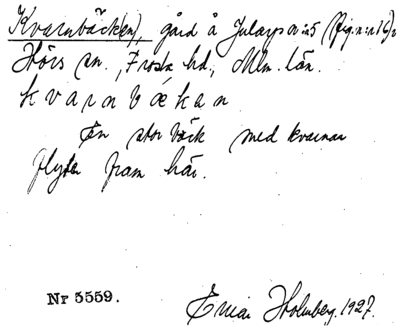 Kvarnbäck(en), gård å Jularps nr 5
Hörs sn., Frosta hd., Mlm. län.
kvarnbækan
En stor bäck med kvarnar
flyter fram här.
Nr 5559. Einar Holmberg. 1927.